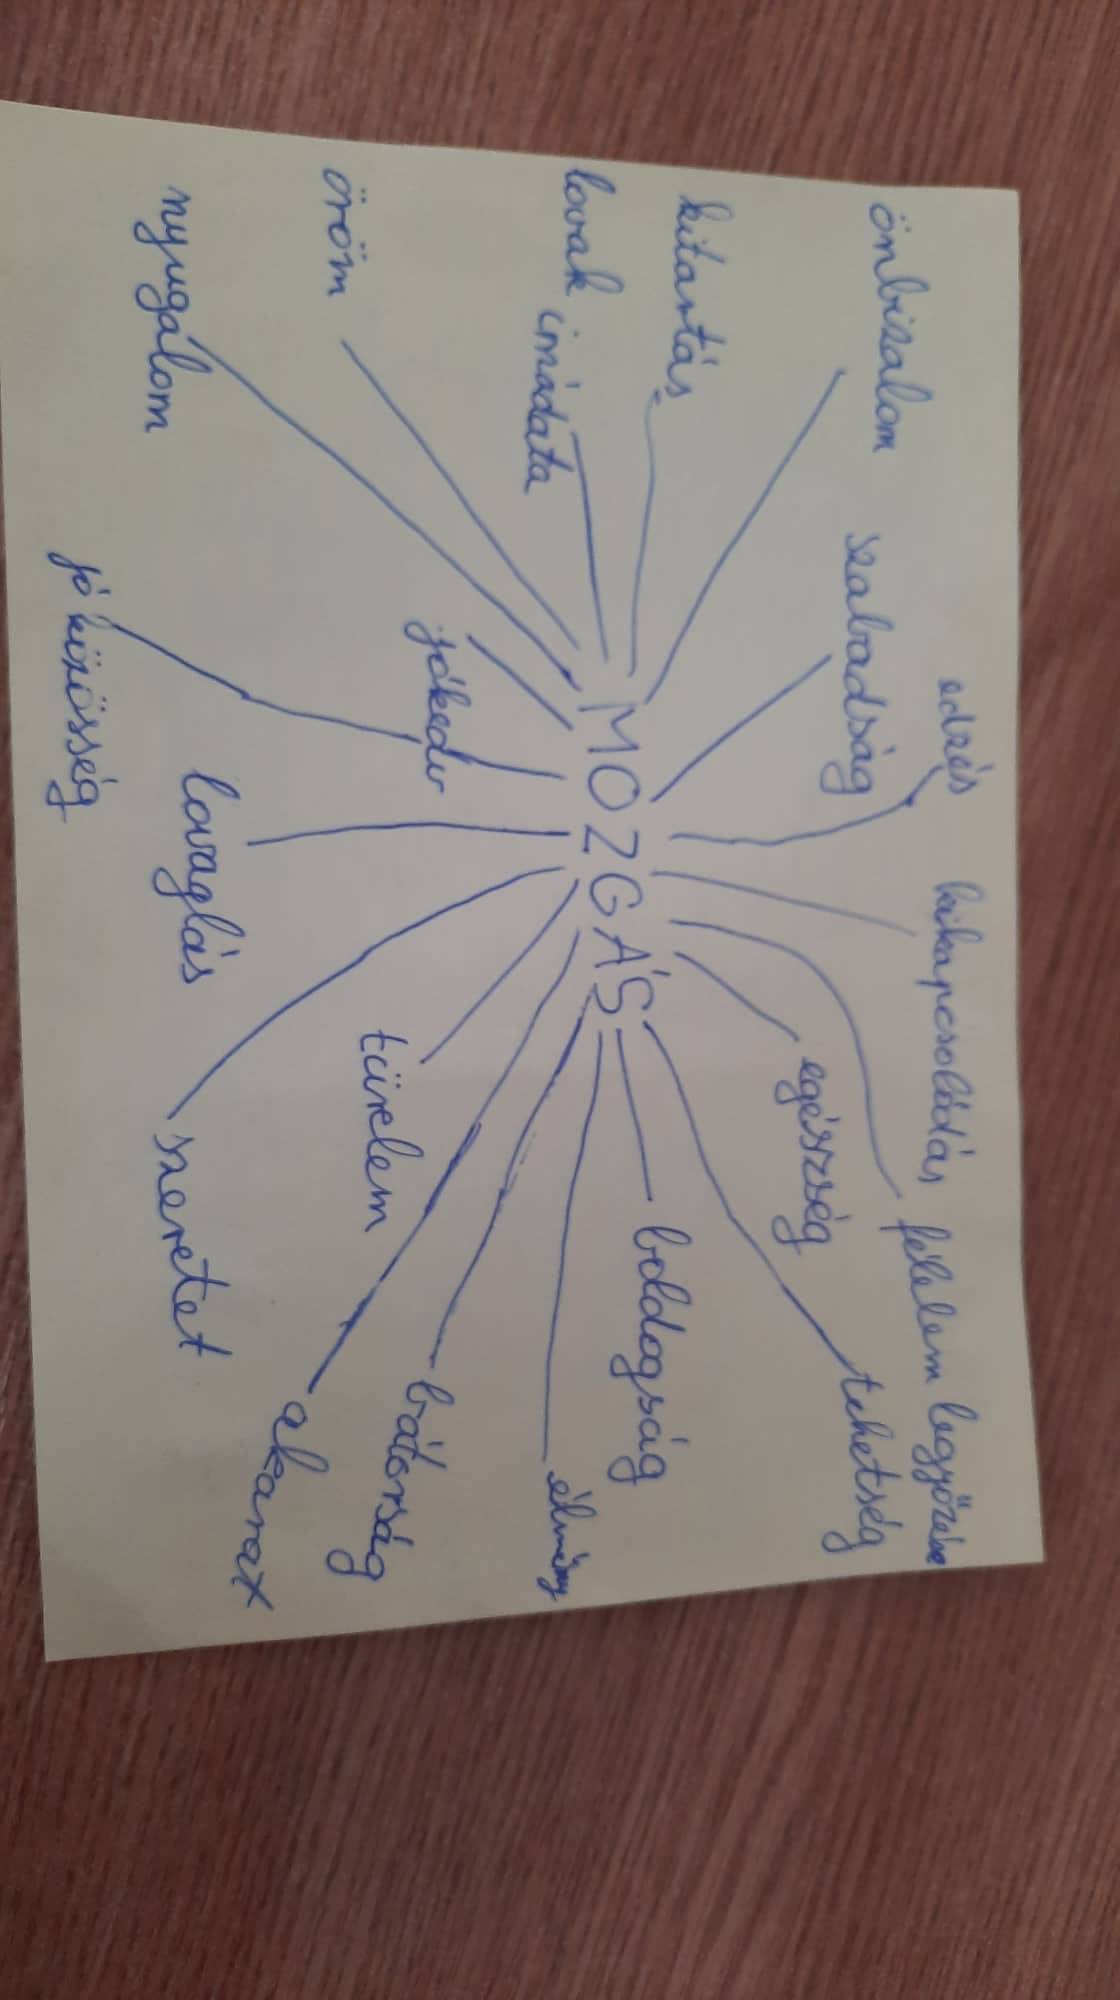 edzés
kikapcsolódás
félelem legyőzése
önbizalom
szabadság
egészség
tehetség
kitartás
lovak imádata
MOZGÁS
boldogság
élmény
öröm
jókedv
türelem
bátorság
nyugalom
lovaglás
szeretet
akarat
jó közösség